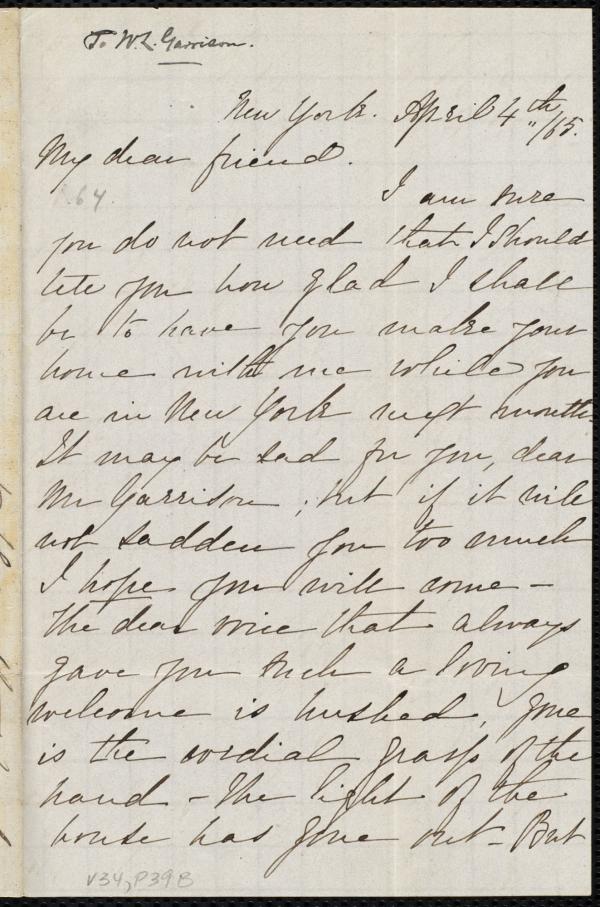 To W.L. Garrison.
New York. April 4th/65.
My dear friend.
64.
I am sure
you do not need that I should
tell you how glad I shall
be to have you make your
home with me while you
are in New York next month.
It may be sad for you, dear
Mr Garrison; but if it will
not sadden you too much
I hope you will come –
The dear voice that always
gave you such a loving
welcome is hushed, gone
is the cordial grasp of the
hand – The light of the
house has gone out – But
V34, P39B